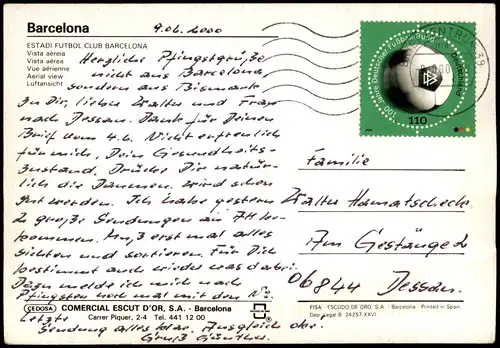 Barcelona
9.06.2000
ESTADI FUTBOL CLUB BARCELONA
Vista aèreia
Vista aérea
Vue aérienne
Aerial view
Luftansicht
Herzliche Pfingstgrüße
nicht aus Barcelona,
sondern aus Bismark
Dir, lieber Walter und Frau
nach Dessau. Dank für Deinen
Brief vom 4.6. Nicht erfreulich
für mich, Dein Gesundheits-
zustand. Drücke Dir natür-
lich die Daumen, wird schon
gut werden. Ich habe gestern
2 große Sendungen an be-
kommen. Muß erst mal alles
sichten und sortieren. Für Dich
bestimmt auch wieder was dabei.
Dazu melde ich mich nach
Pfingsten noch mal mit den
Letzte
Sendung alles klar. Ausgleich
Gruß Günther
100 Jahre Deutscher Fußballbund
Deutschland
DFB
110
Familie
Walter
Am Gestänge 2
06844 Dessau
CEDOSA
COMERCIAL ESCUT D'OR, S.A. - Barcelona
Carrer Piquer, 2-4 Tel. 441 12 00
FISA - ESCUDO DE ORO, S.A. - Barcelona - Printed in Spain
Dep. Legal B. 24257-XXVI